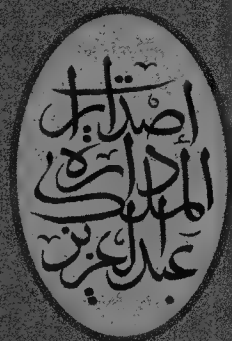 إصدارات
دارة
الملك
عبدالعزيز